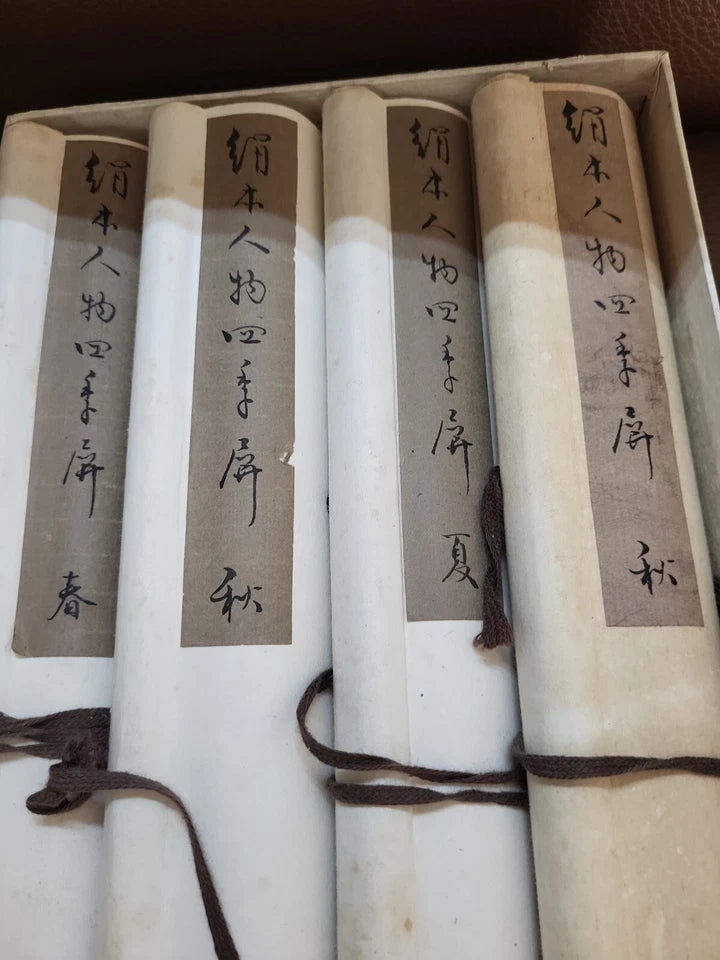 絹本人物四季屏 春
絹本人物四季屏 秋
絹本人物四季屏 夏
絹本人物四季屏 秋